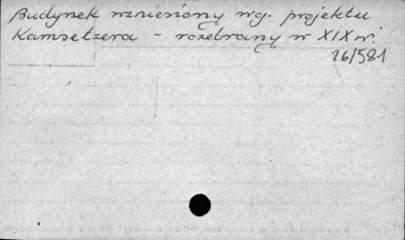 Budynek wzniesiony wg. projektu
Kamsetzera - rozebrany w XIX w.
26/581